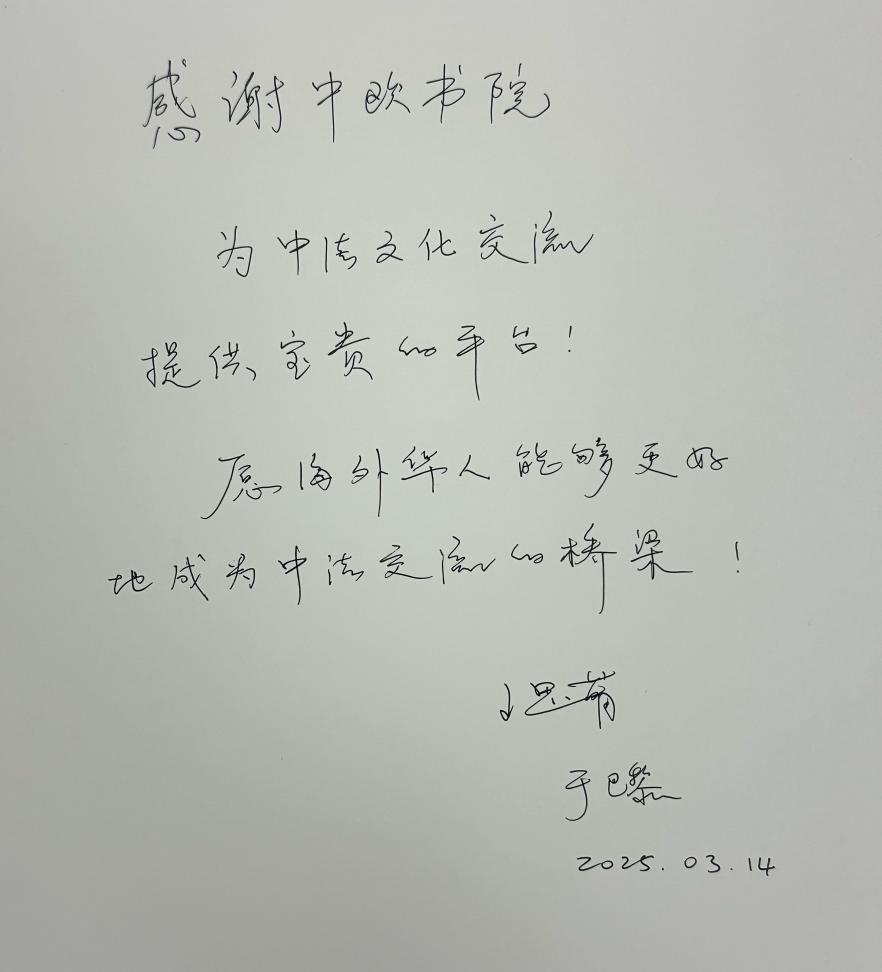 感谢中欧书院
为中法文化交流
提供宝贵的平台！
愿海外华人能够更好
地成为中法交流的桥梁！
思
于巴黎
2025.03.14